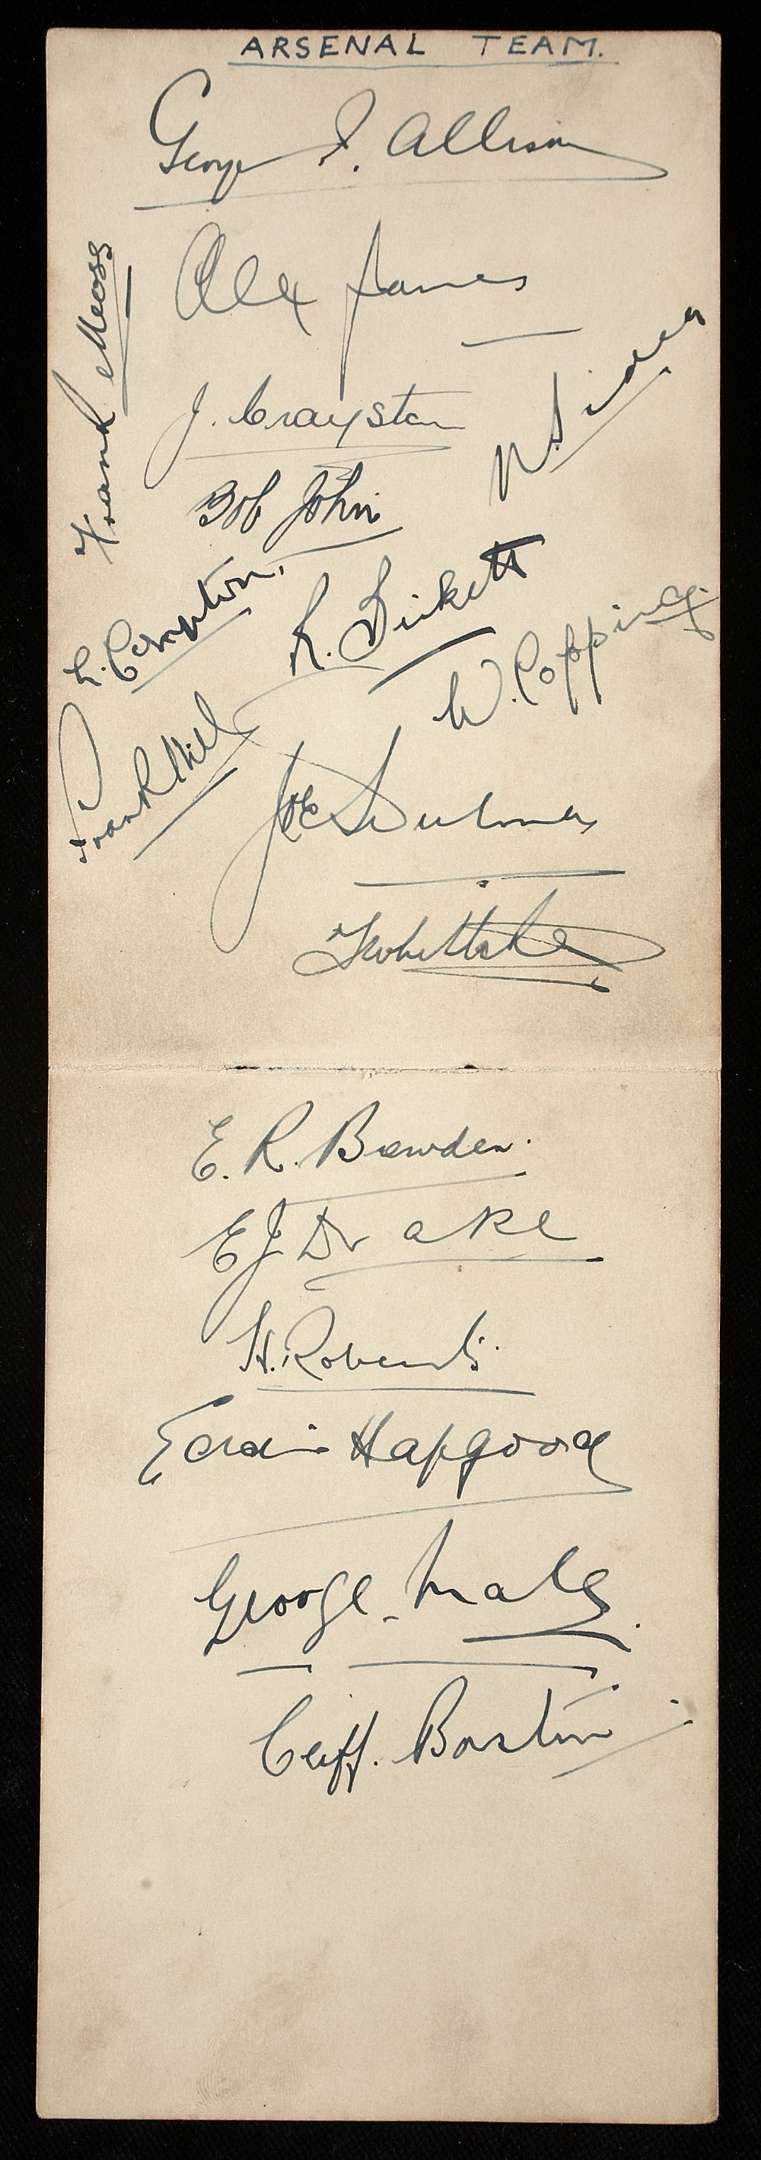 ARSENAL TEAM.
George F. Allison
Alex James
Frank Moss
J. Crayston
N. Sidey
Bob John
L. Compton.
R. Birkett
W. Copping.
Frank Hill
Joe Hulme
T Whittaker
E. R. Bowden.
E J Drake
H. Roberts.
Eddie Hapgood
George Male
Cliff. Bastin